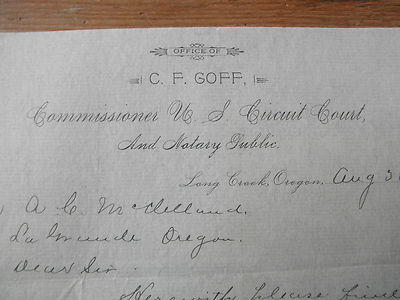 OFFICE OF
C. F. GOFF,
Commissioner U. S. Circuit Court,
And Notary Public.
Long Creek, Oregon, Aug 3
A. C. McClelland.
La Grande Oregon.
Dear Sir.
Herewith please find